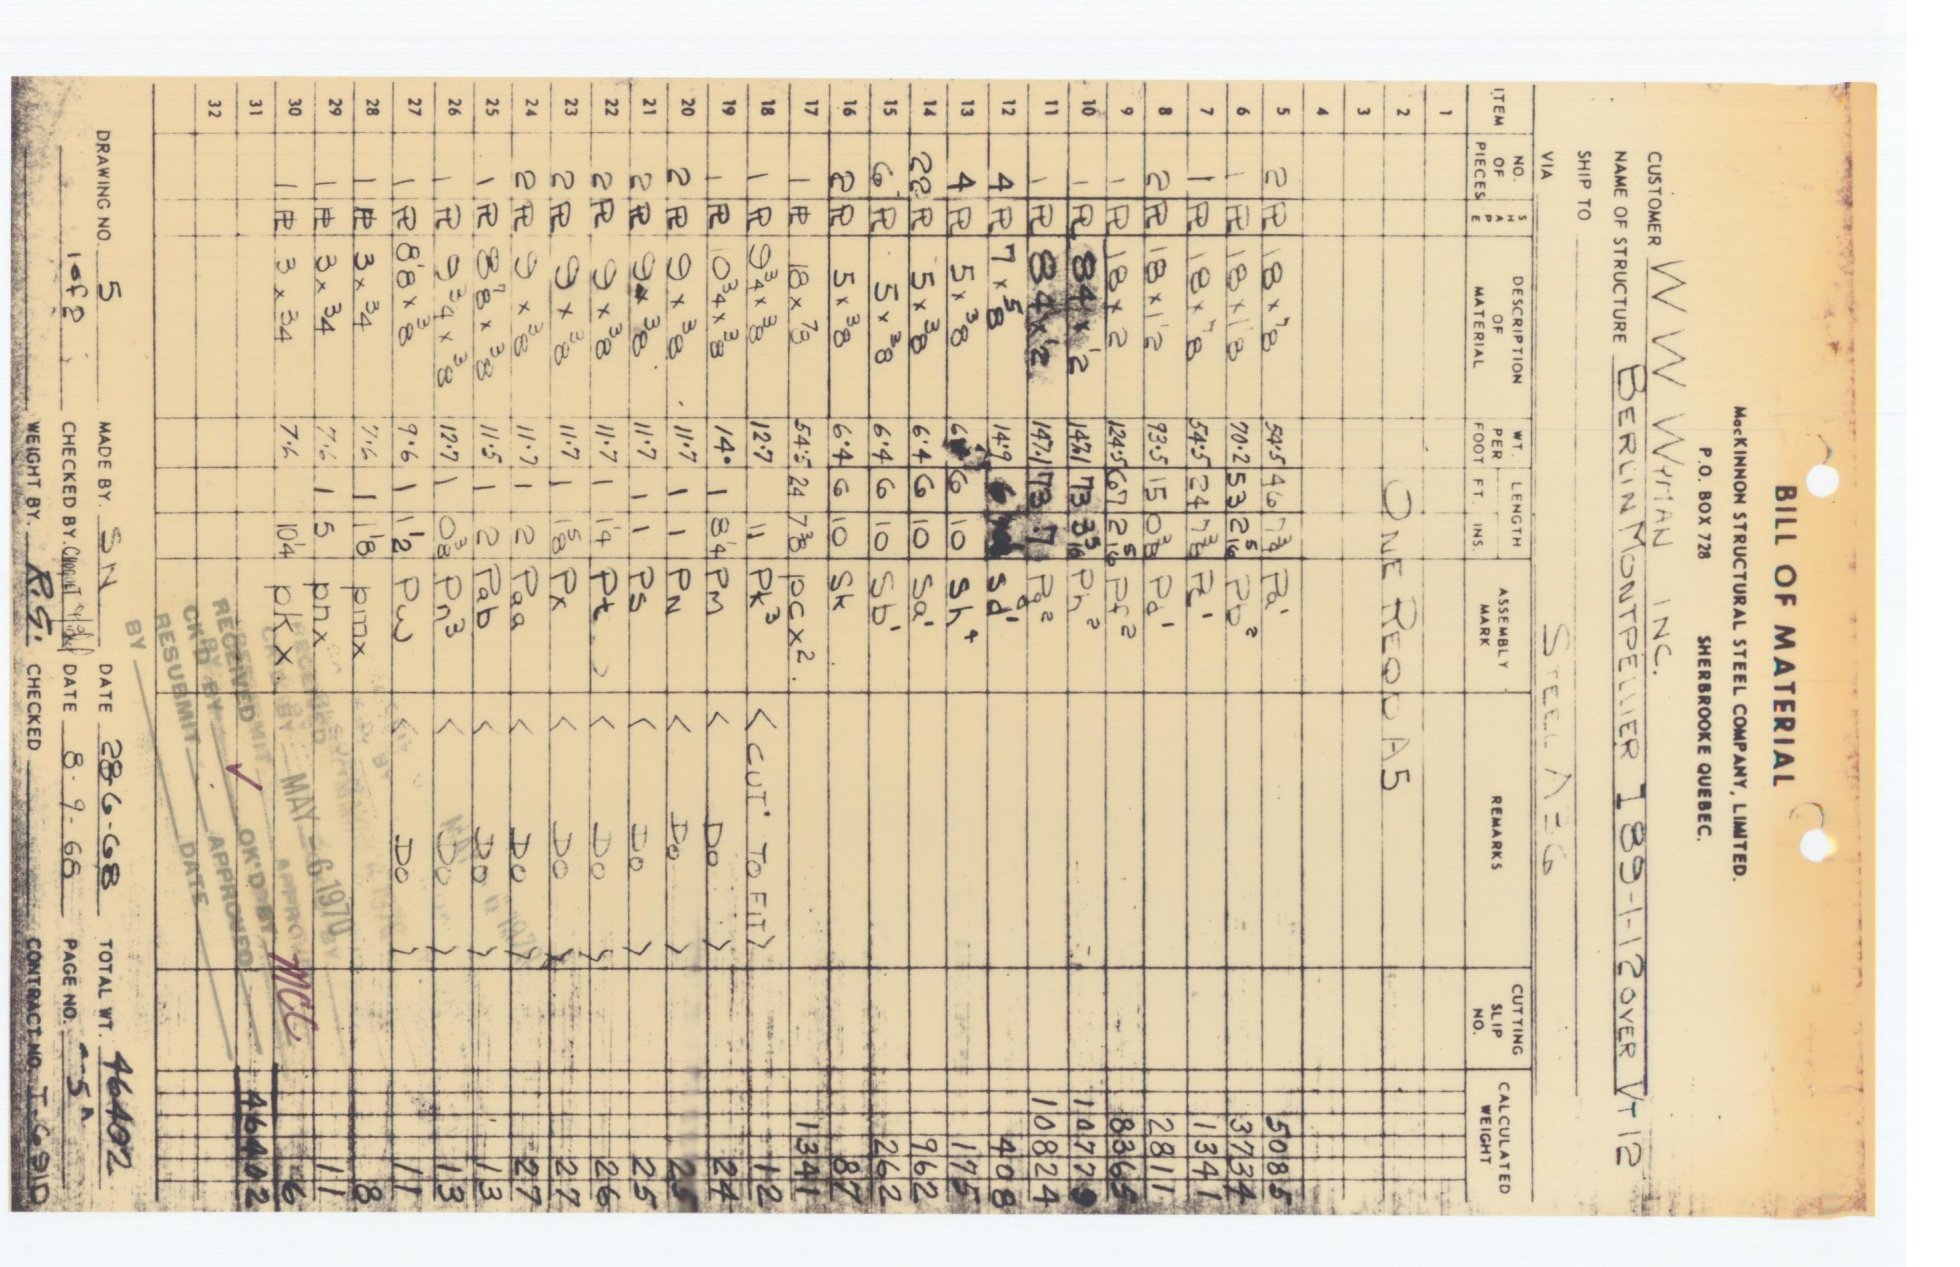 BILL OF MATERIAL
MacKINNON STRUCTURAL STEEL COMPANY, LIMITED.
P.O. BOX 728 SHERBROOKE QUEBEC.
CUSTOMER W W WYMAN INC.
NAME OF STRUCTURE BERLIN MONTPELLIER I 89-1-12 OVER VT 12
SHIP TO
VIA STEEL A-36
ITEM NO. OF PIECES SHAPE DESCRIPTION OF MATERIAL WT. PER FOOT LENGTH FT. INS ASSEMBLY MARK REMARKS CUTTING SLIP NO. CALCULATED WEIGHT
1
2 ONE REQD A5
3
4
5 2 PL 18 x 7/8 54.5 46 7 3/4 Pa' 5085
6 1 PL 18 x 1 1/8 70.2 53 2 5/16 Pb2 3734
7 1 PL 18 x 7/8 54.5 24 7 3/8 Pc' 1341
8 2 PL 18 x 1 1/2 93.5 15 0 3/8 Pd' 2811
9 1 PL 18 x 2 124.5 67 2 5/16 Pf2 8365
10 1 PL 84 x 1/2 147.1 73 3 5/16 Ph2 10779
11 1 PL 84 x 1/2 147.1 73 7 Pg2 10824
12 4 PL 7 x 5/8 14.9 6 Sd' 408
13 4 PL 5 x 3/8 6 10 Sh4 175
14 22 PL 5 x 3/8 6.4 6 10 Sa' 962
15 6 PL 5 x 3/8 6.4 6 10 Sb' 262
16 2 PL 5 x 3/8 6.4 6 10 Sk 87
17 1 PL 18 x 7/8 54.5 24 7 3/8 pcx2. 1341
18 1 PL 9 3/4 x 3/8 12.7 11 Pk3 < CUT TO FIT > 12
19 1 PL 10 3/4 x 3/8 14. 1 8 1/4 PM < DO > 24
20 2 PL 9 x 3/8 11.7 1 1 PN < DO > 25
21 2 PL 9 x 3/8 11.7 1 1 Ps < DO > 25
22 2 PL 9 x 3/8 11.7 1 1 1/4 Pt < DO > 26
23 2 PL 9 x 3/8 11.7 1 1 5/8 Px < DO > 27
24 2 PL 9 x 3/8 11.7 1 2 Paa < DO > 27
25 1 PL 8 7/8 x 3/8 11.5 1 2 Pab < DO > 13
26 1 PL 9 3/4 x 3/8 12.7 1 0 3/8 Pn3 < DO > 13
27 1 PL 8 1/8 x 3/8 9.6 1 1 1/2 Pw < DO > 11
28 1 PL 3 x 3/4 7.6 1 1/8 pmx 8
29 1 PL 3 x 3/4 7.6 1 5 pnx 11
30 1 PL 3 x 3/4 7.6 10 1/4 pkx 6
31 46402
32
MAY - 6 1970
MCC
RECEIVED OK'D BY
CK'D BY APPROVED
RESUBMIT DATE
BY
DRAWING NO. 5 MADE BY. SN DATE 28-6-68 TOTAL WT. 46402
1 of 2 CHECKED BY DATE 8-9-68 PAGE NO. 5A
WEIGHT BY. R.G. CHECKED CONTRACT NO.